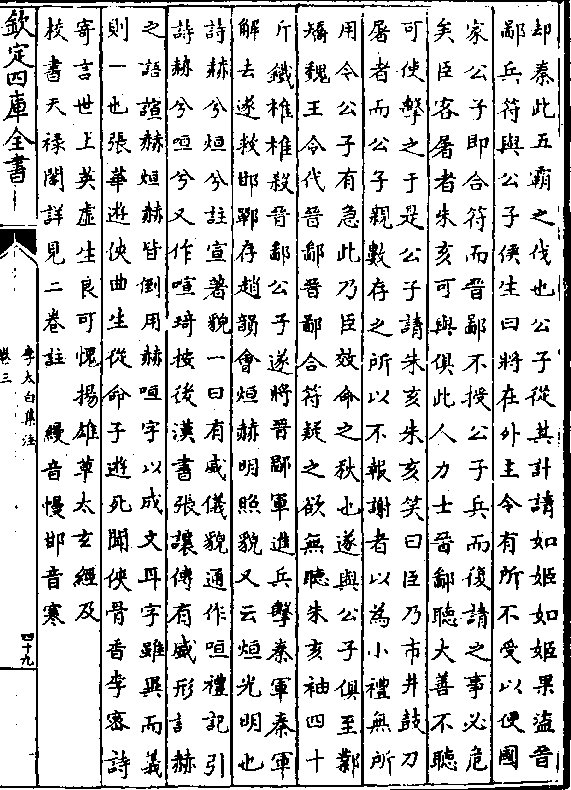 却秦此五霸之伐也公子從其計請如姬如姬果盜晉
鄙兵符與公子侯生曰將在外主令有所不受以便國
家公子即合符而晉鄙不授公子兵而復請之事必危
矣臣客屠者朱亥可與俱此人力士晉鄙聽大善不聽
可使擊之于是公子請朱亥朱亥笑曰臣乃市井鼓刀
屠者而公子親數存之所以不報謝者以為小禮無所
用今公子有急此乃臣效命之秋也遂與公子俱至鄴
矯魏王令代晉鄙晉鄙合符疑之欲無聽朱亥袖四十
斤鐵椎椎殺晉鄙公子遂將晉鄙軍進兵擊秦軍秦軍
解去遂救邯鄲存趙韻會烜赫明照貌又云烜光明也
詩赫兮烜兮註宣著貌一曰有威儀貌通作咺禮記引
詩赫兮咺兮又作喧琦按後漢書張讓傳有威形諠赫
之語諠赫烜赫皆倒用赫咺字以成文耳字雖異而義
則一也張華遊俠曲生從命子遊死聞俠骨香李密詩
寄言世上英虛生良可愧揚雄草太玄經及
校書天祿閣詳見二卷註 縵音慢邯音寒
欽定四庫全書
李太白集注
卷三
四十九